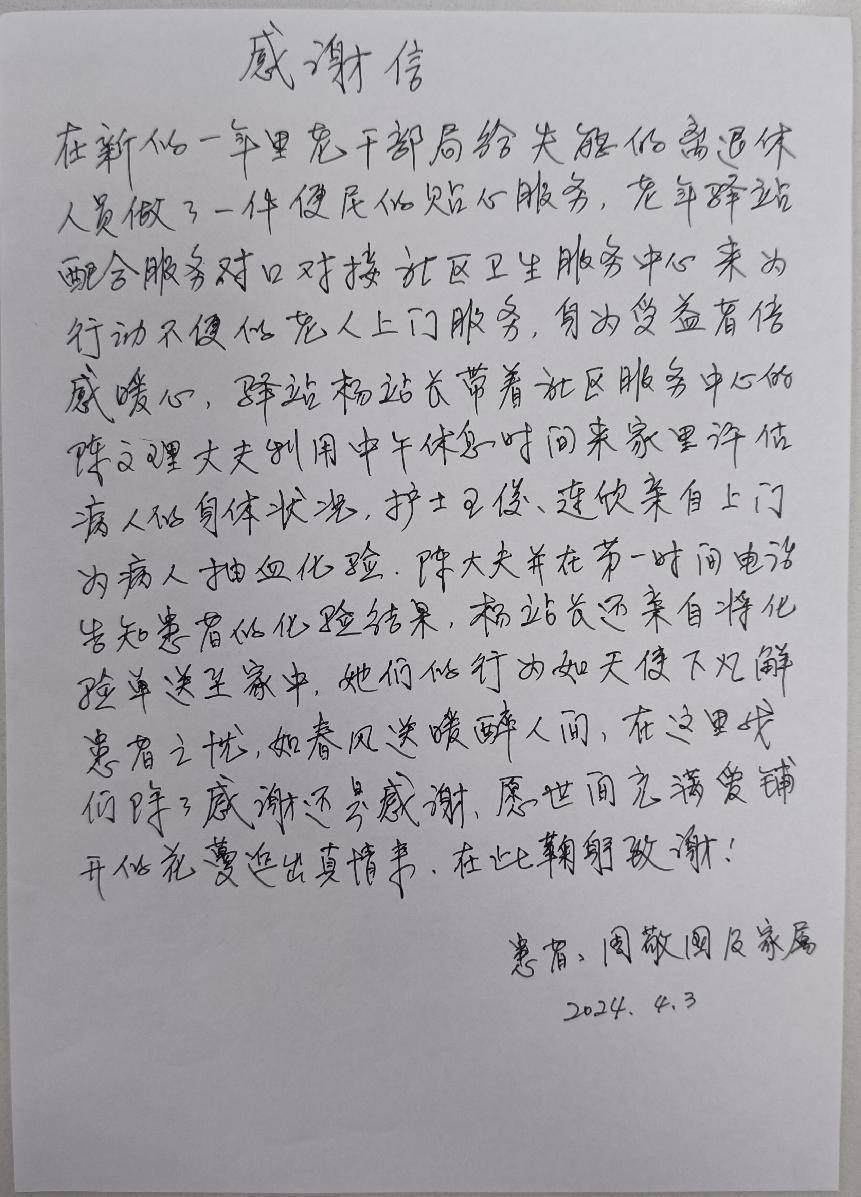 感谢信
在新的一年里老干部局给失能的离退休
人员做了一件便民的贴心服务，老年驿站
配合服务对口对接社区卫生服务中心来为
行动不便的老人上门服务，身为受益者倍
感暖心，驿站杨站长带着社区服务中心的
陈文理大夫利用中午休息时间来家里评估
病人的身体状况，护士王俊、连欣亲自上门
为病人抽血化验．陈大夫并在第一时间电话
告知患者的化验结果，杨站长还亲自将化
验单送至家中，她们的行为如天使下凡解
患者之忧，如春风送暖醉人间，在这里我
们除了感谢还是感谢、愿世间充满爱铺
开的花蔓延出真情来．在此鞠躬致谢！
患者：周敬国及家属
2024.4.3